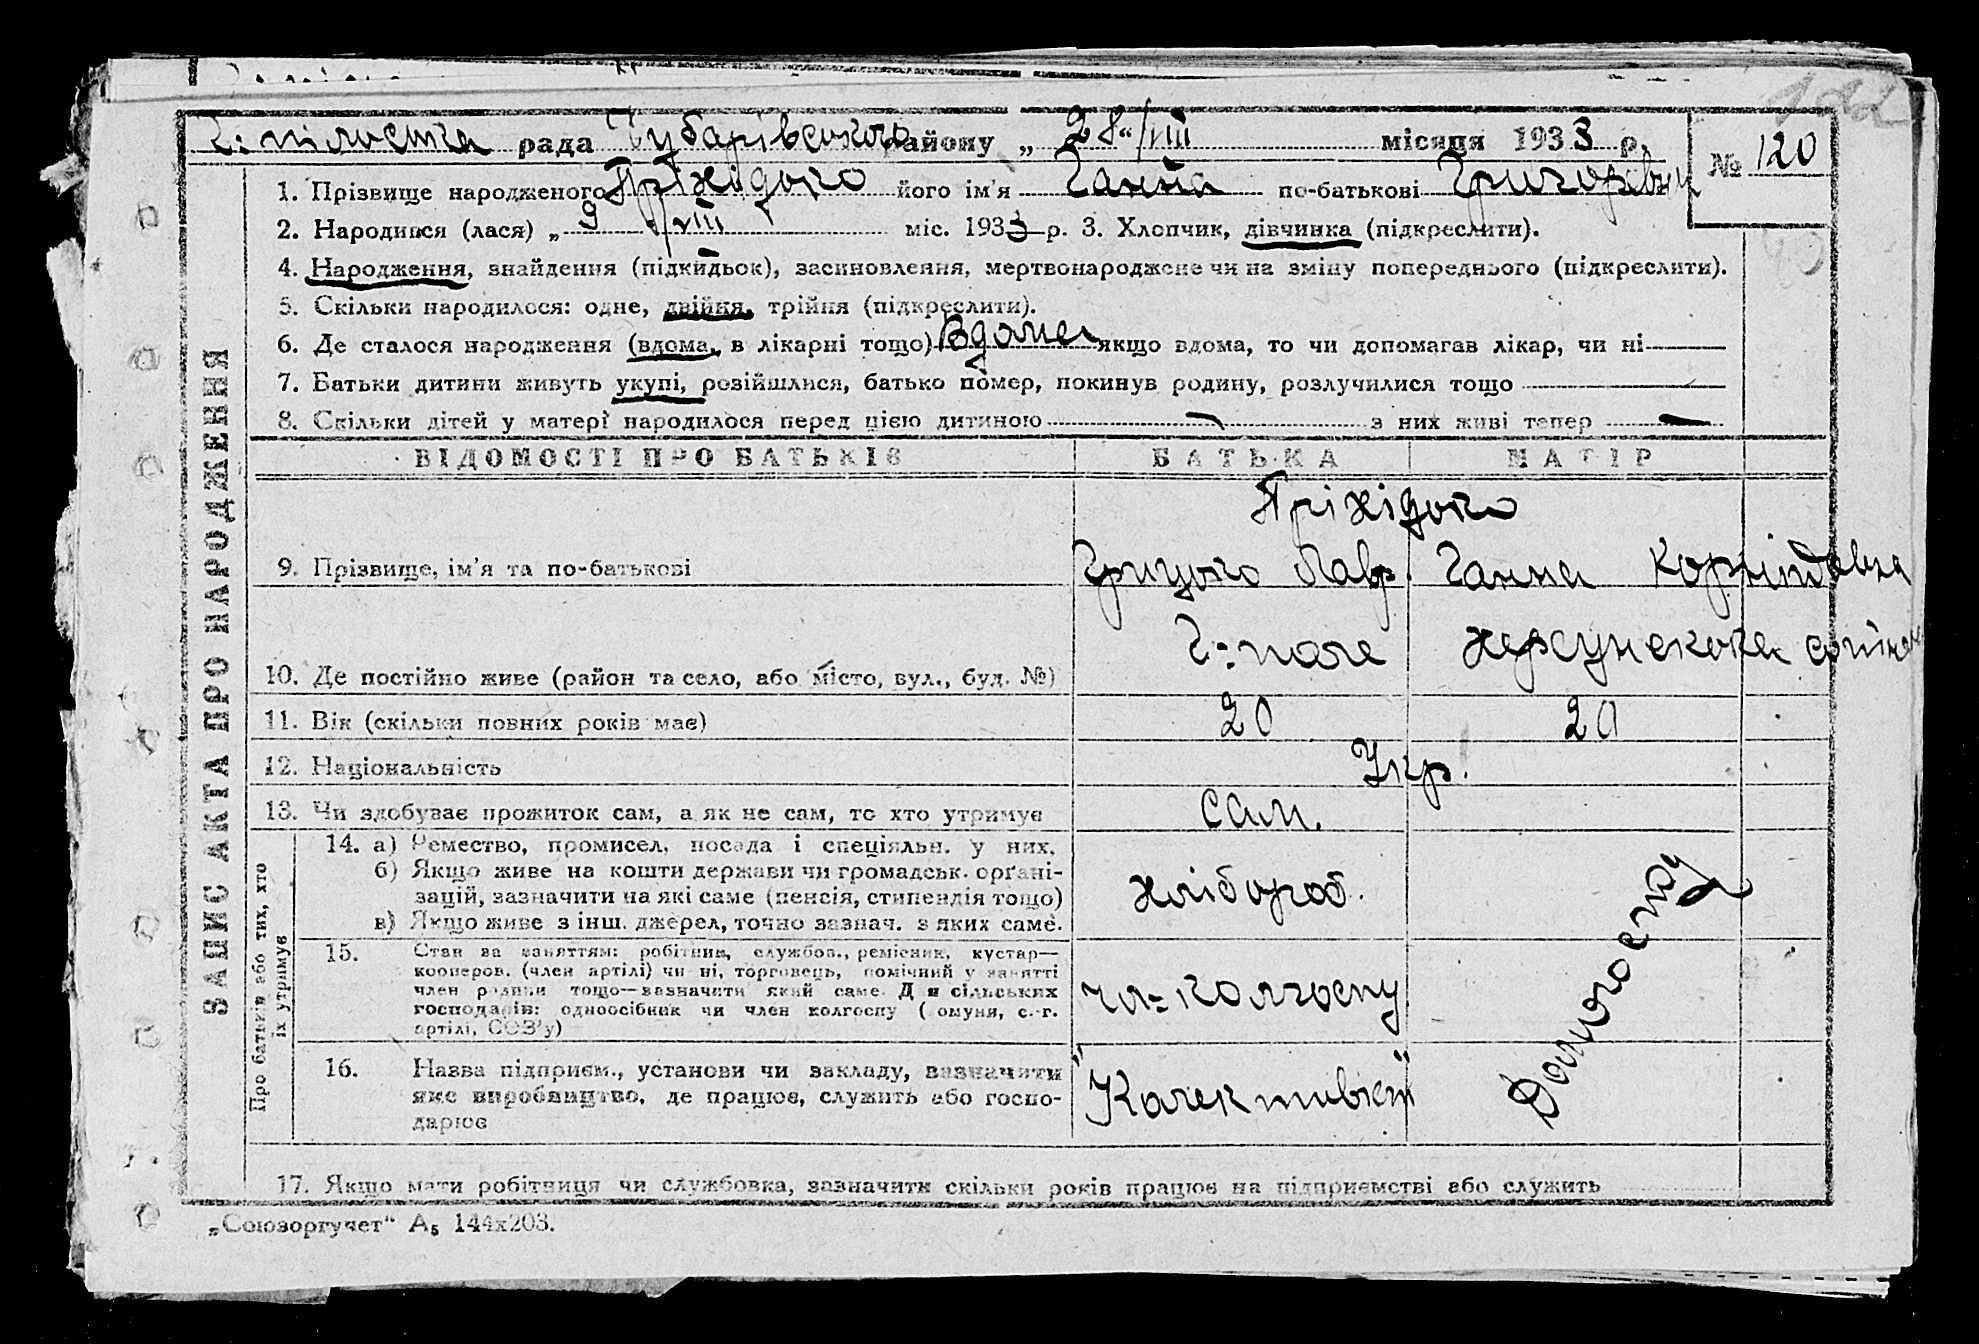 рада Чубарівського району „ 28"/VIII місяця 1933 р.
№ 120
1. Прізвище народженого Пріхідько його ім'я Ганна по-батькові Григоревн
2. Народився (лася) „ 9/VIII міс. 1933 р. 3. Хлопчик, дівчинка (підкреслити).
4. Народження, знайдення (підкидьок), засиновлення, мертвонароджене чи на зміну попереднього (підкреслити).
5. Скільки народилося: одне, двійня, трійня (підкреслити).
6. Де сталося народження (вдома, в лікарні тощо) Вдома якщо вдома, то чи допомагав лікар, чи ні
7. Батьки дитини живуть укупі, розійшлися, батько помер, покинув родину, розлучилися тощо
8. Скільки дітей у матері народилося перед цією дитиною — з них живі тепер —
ЗАПИС АКТА ПРО НАРОДЖЕННЯ
ВІДОМОСТІ ПРО БАТЬКІВ БАТЬКА МАТІР
Пріхідько
9. Прізвище, ім'я та по-батькові Григорій Лавр. Ганна
10. Де постійно живе (район та село, або місто, вул., буд. №) Г=поле
11. Вік (скільки повних років має) 20 20
12. Національність Укр.
13. Чи здобуває прожиток сам, а як не сам, то хто утримує сам.
Про батьків або тих, хто їх утримує
14. а) Ремество, промисел, посада і спеціяльн. у них.
б) Якщо живе на кошти держави чи громадськ. органі-
зацій, зазначити на які саме (пенсія, стипендія тощо) хлібороб.
в) Якщо живе з інш. джерел, точно зазнач. з яких саме.
15. Стан за заняттям: робітник, службов., ремісник, кустар—
кооперов. (член артілі) чи ні, торговець, помічний у занятті
член родини тощо—зазначити який саме. Для сільських
господарів: одноосібник чи член колгоспу (комуни, с.-г.
артілі, СОЗ'у)
чл= колгоспу
16. Назва підприєм., установи чи закладу, зазначити
яке виробництво, де працює, служить або госпо-
дарює
"Колективіст"
Домогоспод
17. Якщо мати робітниця чи службовка, зазначити скільки років працює на підприємстві або служить
„Союзоргучет" А₅ 144х203.